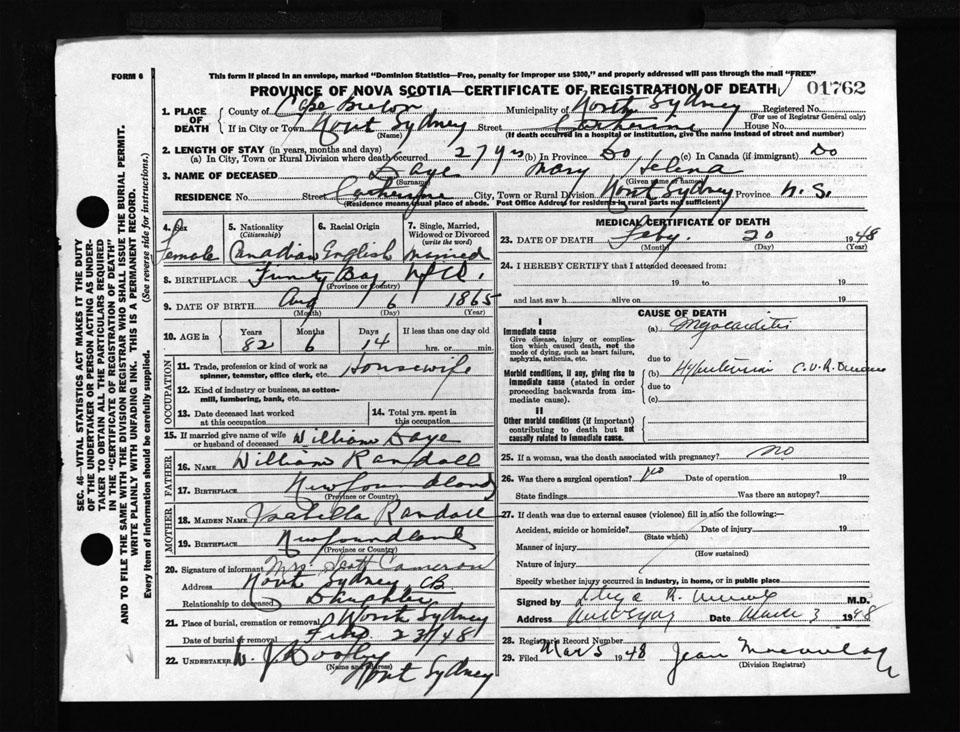 FORM 6
This form if placed in an envelope, marked "Dominion Statistics—Free, penalty for improper use $300," and properly addressed will pass through the mail "FREE"
PROVINCE OF NOVA SCOTIA—CERTIFICATE OF REGISTRATION OF DEATH 01762
1. PLACE OF DEATH
County of Cape Breton Municipality of North Sydney Registered No.
(For use of Registrar General only)
If in City or Town North Sydney Street Catherine House No.
(Name) (If death occurred in a hospital or institution, give the name instead of street and number)
2. LENGTH OF STAY (in years, months and days)
(a) In City, Town or Rural Division where death occurred 27 yrs (b) In Province Do (c) In Canada (if immigrant) Do
3. NAME OF DECEASED Daye Mary Selena
(Surname) (Given name or Names)
RESIDENCE No. Street Catherine City, Town or Rural Division North Sydney Province N.S.
(Residence means usual place of abode. Post Office Address for residents in rural parts not sufficient)
4. Sex Female
5. Nationality (Citizenship) Canadian
6. Racial Origin English
7. Single, Married, Widowed or Divorced (write the word) Married
8. BIRTHPLACE Trinity Bay Nfld.
(Province or Country)
9. DATE OF BIRTH Aug 6 1865
(Month) (Day) (Year)
10. AGE in Years Months Days If less than one day old
82 6 14 hrs. or min.
OCCUPATION
11. Trade, profession or kind of work as spinner, teamster, office clerk, etc. Housewife
12. Kind of industry or business, as cotton-mill, lumbering, bank, etc.
13. Date deceased last worked at this occupation
14. Total yrs. spent in this occupation
15. If married give name of wife or husband of deceased William Daye
FATHER
16. NAME William Randall
17. BIRTHPLACE Newfoundland
(Province or Country)
MOTHER
18. MAIDEN NAME Randall
19. BIRTHPLACE Newfoundland
(Province or Country)
20. Signature of informant Mrs Scott Cameron
Address North Sydney CB
Relationship to deceased Daughter
21. Place of burial, cremation or removal North Sydney
Date of burial or removal Feb 23/48
22. UNDERTAKER W. J. Dooley
(Name and address)
North Sydney
MEDICAL CERTIFICATE OF DEATH
23. DATE OF DEATH Feby. 20 1948
(Month) (Day) (Year)
24. I HEREBY CERTIFY that I attended deceased from:
19 to 19
and last saw h alive on 19
CAUSE OF DEATH
I
Immediate cause
Give disease, injury or complication which caused death, not the mode of dying, such as heart failure, asphyxia, asthenia, etc.
(a) Myocarditis
due to
Morbid conditions, if any, giving rise to immediate cause (stated in order proceeding backwards from immediate cause).
(b) Hypertension C.V.R. Disease
due to
(c)
II
Other morbid conditions (if important) contributing to death but not causally related to immediate cause.
25. If a woman, was the death associated with pregnancy? no
26. Was there a surgical operation? No Date of operation 19
State findings Was there an autopsy?
27. If death was due to external causes (violence) fill in also the following:—
Accident, suicide or homicide? Date of injury 19
(State which)
Manner of injury
(How sustained)
Nature of injury
Specify whether injury occurred in industry, in home, or in public place
Signed by M.D.
Address Date March 3 1948
28. Registrar's Record Number
29. Filed Mar 5 1948 Jean
(Division Registrar)
SEC. 46—VITAL STATISTICS ACT MAKES IT THE DUTY
OF THE UNDERTAKER OR PERSON ACTING AS UNDER-
TAKER TO OBTAIN ALL THE PARTICULARS REQUIRED
IN THE "CERTIFICATE OF REGISTRATION OF DEATH"
AND TO FILE THE SAME WITH THE DIVISION REGISTRAR WHO SHALL ISSUE THE BURIAL PERMIT.
WRITE PLAINLY WITH UNFADING INK. THIS IS A PERMANENT RECORD.
Every item of information should be carefully supplied. (See reverse side for instructions.)